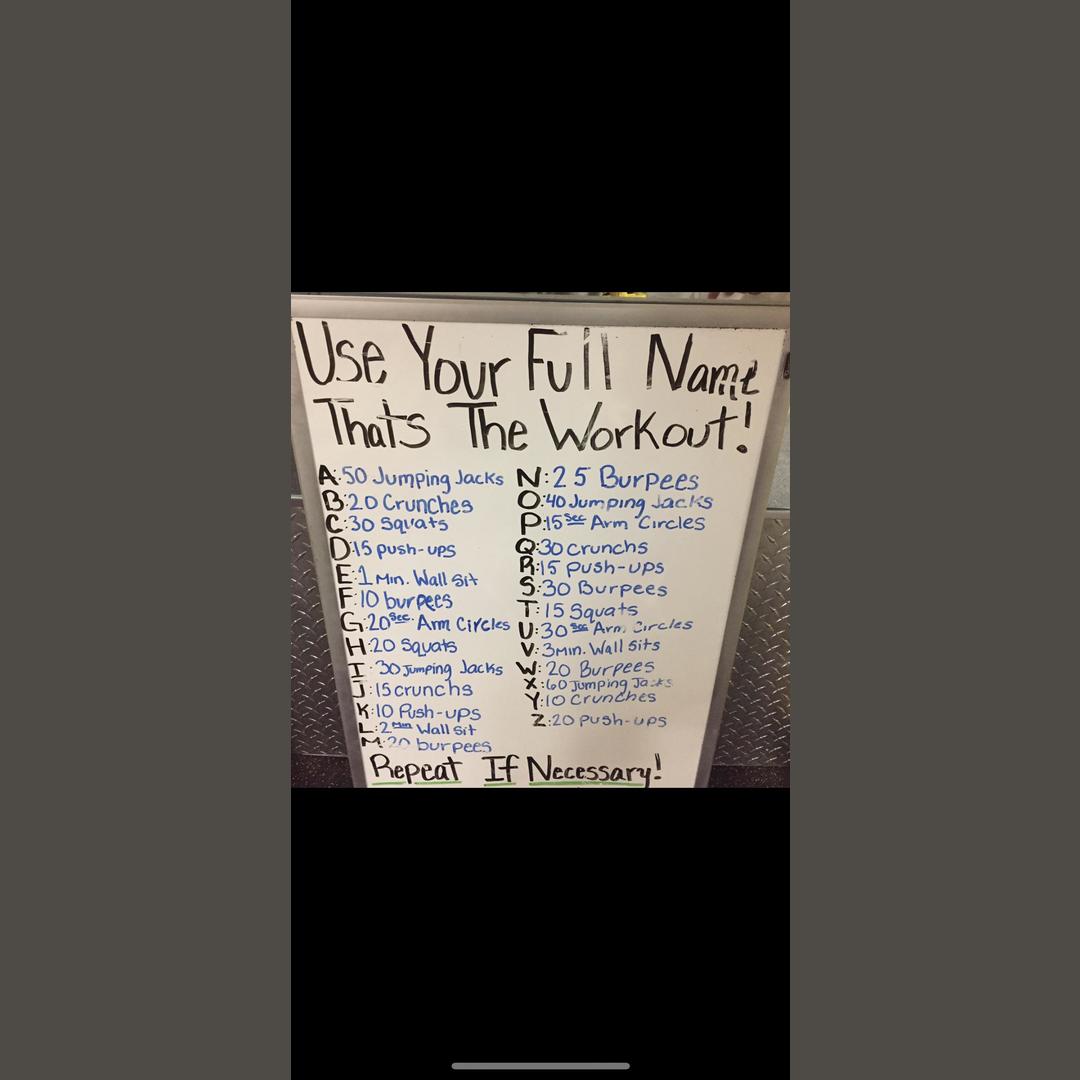 Use Your Full Name
Thats The Workout!
A:50 Jumping Jacks
B:20 Crunches
C:30 Squats
D:15 push-ups
E:1 Min. Wall Sit
F:10 burpees
G:20 Sec. Arm Circles
H:20 Squats
I:30 Jumping Jacks
J:15 crunchs
K:10 Push-ups
L:2 Min Wall Sit
M:20 burpees
N:25 Burpees
O:40 Jumping Jacks
P:15 Sec Arm Circles
Q:30 crunchs
R:15 push-ups
S:30 Burpees
T:15 Squats
U:30 Sec Arm Circles
V:3 Min. Wall Sits
W:20 Burpees
X:60 Jumping Jacks
Y:10 Crunches
Z:20 Push-ups
Repeat If Necessary!